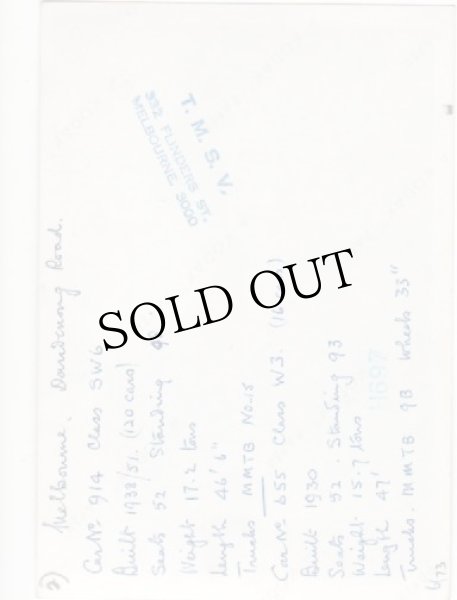 2) Melbourne. Dandenong Road.
Car No 914 Class SW6
Built 1938/51. (120 cars)
Seats 52 Standing
Weight 17.2 tons
Length 46' 6"
Trucks MMTB No. 15
Car No 655 Class W3.
Built 1930
Seats 52. Standing 93
Weight 15.7 tons
Length 47'
Trucks. MMTB 9B Wheels 33"
T. M. S. V.
225 FLINDERS ST.
MELBOURNE 3000
H697
SOLD OUT